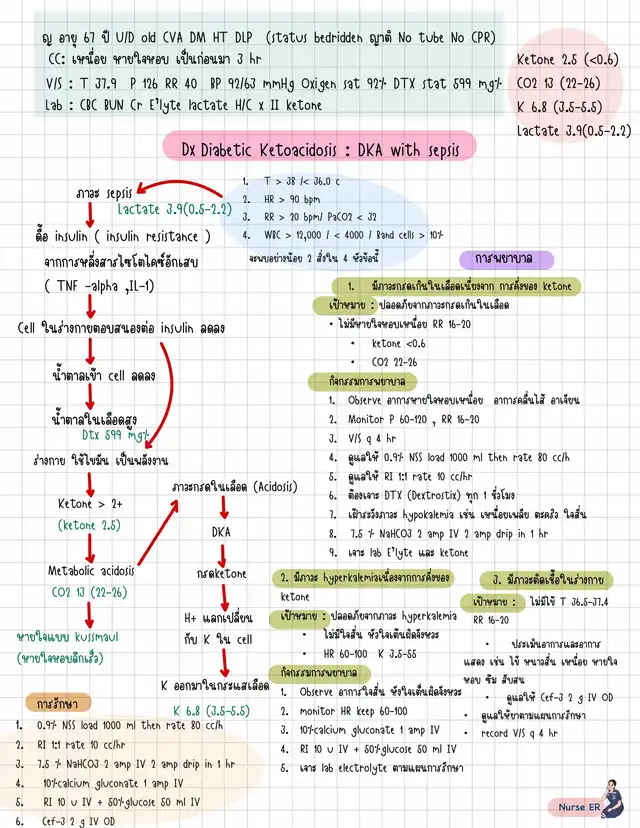 ญ อายุ 67 ปี U/D old CVA DM HT DLP (status bedridden ญาติ No tube No CPR)
CC: เหนื่อย หายใจหอบ เป็นก่อนมา 3 hr
V/S : T 37.9 P 126 RR 40 BP 92/63 mmHg Oxigen sat 92% DTX stat 599 mg%
Lab : CBC BUN Cr E'lyte lactate H/C x II ketone
Ketone 2.5 (<0.6)
CO2 13 (22-26)
K 6.8 (3.5-5.5)
Lactate 3.9(0.5-2.2)
Dx Diabetic Ketoacidosis : DKA with sepsis
1. T > 38 /< 36.0 c
2. HR > 90 bpm
3. RR > 20 bpm/ PaCO2 < 32
4. WBC > 12,000 / < 4000 / Band cells > 10%
จะพบอย่างน้อย 2 สิ่งใน 4 หัวข้อนี้
ภาวะ sepsis
Lactate 3.9(0.5-2.2)
ดื้อ insulin ( insulin resistance )
จากการหลั่งสารไซโตไคซ์อักเสบ
( TNF -alpha ,IL-1)
Cell ในร่างกายตอบสนองต่อ insulin ลดลง
น้ำตาลเข้า cell ลดลง
น้ำตาลในเลือดสูง
Dtx 599 mg%
ร่างกาย ใช้ไขมัน เป็นพลังงาน
Ketone > 2+
(ketone 2.5)
Metabolic acidosis
CO2 13 (22-26)
หายใจแบบ Kussmaul
(หายใจหอบลึกเร็ว)
ภาวะกรดในเลือด (Acidosis)
DKA
กรดketone
H+ แลกเปลี่ยน
กับ K ใน cell
K ออกมาในกระแสเลือด
K 6.8 (3.5-5.5)
การรักษา
1. 0.9% NSS load 1000 ml then rate 80 cc/hr
2. RI 1:1 rate 10 cc/hr
3. 7.5 % NaHCO3 2 amp IV 2 amp drip in 1 hr
4. 10%calcium gluconate 1 amp IV
5. RI 10 u IV + 50%glucose 50 ml IV
6. Cef-3 2 g IV OD
การพยาบาล
1. มีภาวะกรดเกินในเลือดเนื่องจาก การคั่งของ ketone
เป้าหมาย : ปลอดภัยจากภาวะกรดเกินในเลือด
• ไม่มีหายใจหอบเหนื่อย RR 16-20
• ketone <0.6
• CO2 22-26
กิจกรรมการพยาบาล
1. Observe อาการหายใจหอบเหนื่อย อาการคลื่นไส้ อาเจียน
2. Monitor P 60-120 , RR 16-20
3. V/S q 4 hr
4. ดูแลให้ 0.9% NSS load 1000 ml then rate 80 cc/h
5. ดูแลให้ RI 1:1 rate 10 cc/hr
6. ต้องเจาะ DTX (Dextrostix) ทุก 1 ชั่วโมง
7. เฝ้าระวังภาวะ hypokalemia เช่น เหนื่อยเพลีย ตะคริว ใจสั่น
8. 7.5 % NaHCO3 2 amp IV 2 amp drip in 1 hr
9. เจาะ lab E'lyte และ ketone
2. มีภาวะ hyperkalemiaเนื่องจากการคั่งของ
ketone
เป้าหมาย : ปลอดภัยจากภาวะ hyperkalemia
• ไม่มีใจสั่น หัวใจเต้นผิดจังหวะ
• HR 60-100 K 3.5-55
กิจกรรมการพยาบาล
1. Observe อาการใจสั่น หัวใจเต้นผิดจังหวะ
2. monitor HR keep 60-100
3. 10%calcium gluconate 1 amp IV
4. RI 10 u IV + 50%glucose 50 ml IV
5. เจาะ lab electrolyte ตามแผนการรักษา
3. มีภาวะติดเชื้อในร่างกาย
เป้าหมาย : ไม่มีไข้ T 36.5-37.4
RR 16-20
• ประเมินอาการและอาการ
แสดง เช่น ไข้ หนาวสั่น เหนื่อย หายใจ
หอบ ซึม สับสน
• ดูแลให้ Cef-3 2 g IV OD
• ดูแลให้ยาตามแผนการรักษา
• record V/S q 4 hr
Nurse ER